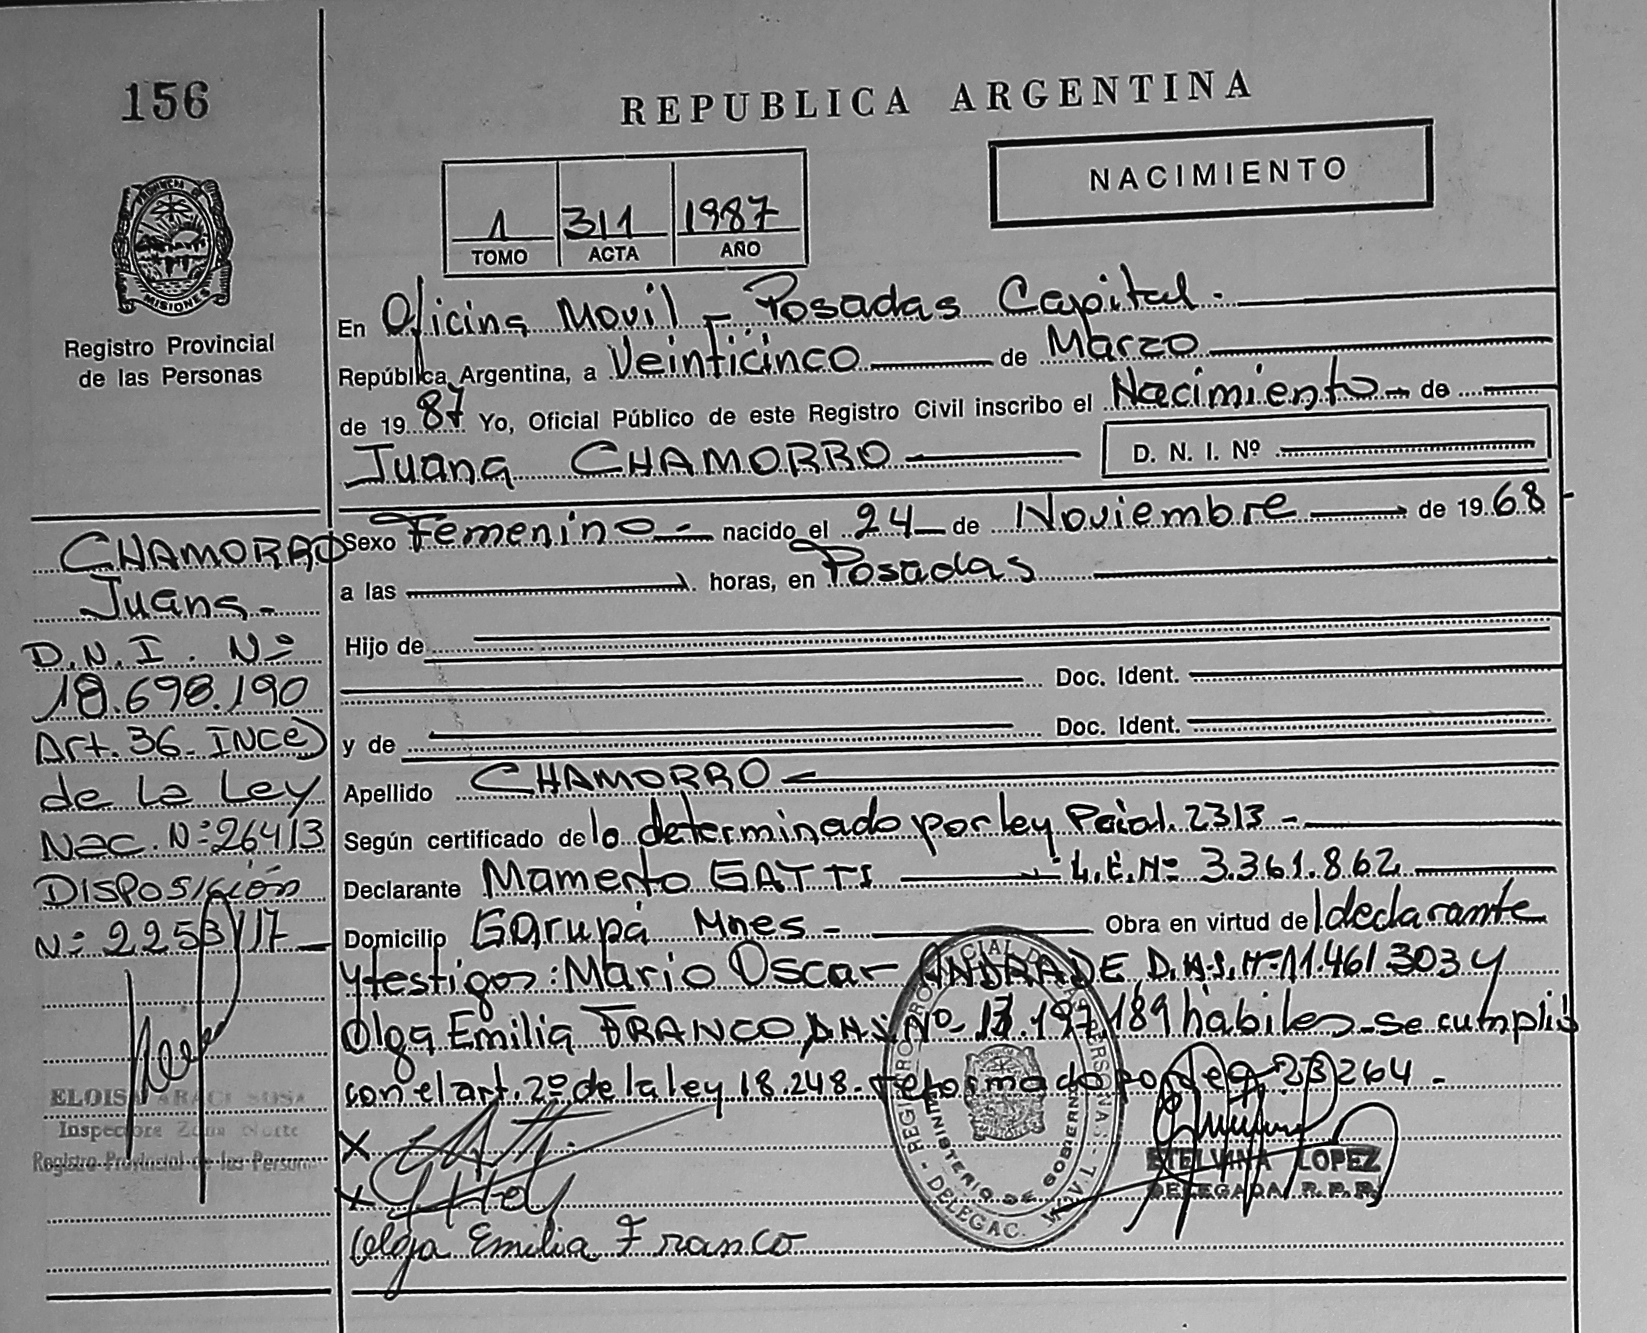 156
REPUBLICA ARGENTINA
NACIMIENTO
1 311 1987
TOMO ACTA AÑO
PROVINCIA DE MISIONES
Registro Provincial
de las Personas
En Oficina Movil - Posadas Capital.
República Argentina, a Veinticinco de Marzo
de 1987 Yo, Oficial Público de este Registro Civil inscribo el Nacimiento de
Juana CHAMORRO D. N. I. Nº
Sexo Femenino - nacido el 24 de Noviembre de 1968-
a las horas, en Posadas
Hijo de
Doc. Ident.
y de Doc. Ident.
Apellido CHAMORRO
Según certificado de lo determinado por ley Pcial. 2313 -
Declarante Mamerto GATTI L.E.Nº 3.361.862
Domicilio Garupá Mnes - Obra en virtud del declarante
y testigos: Mario Oscar ANDRADE, D.N.I. Nº 11.461.303 y
Olga Emilia FRANCO, D.N.I. Nº .197.189 hábiles - se cumplió
con el art. 2º de la ley 18.248 - reformado por ley 23264 -
CHAMORRO
Juana -
D.N.I. Nº
18.698.190
Art. 36 - INC e)
de la Ley
Nac. Nº 26413
DISPOSICIÓN
Nº 2253/17
ELOISA ARACI SOSA
Inspectora Zona Norte
Registro Provincial de las Person
REGISTRO PROVINCIAL DE LAS PERSONAS
MINISTERIO DE GOBIERNO
DELEGAC. MOVIL
X
X
ETELVINA LOPEZ
DELEGADA R.P.P.
Olga Emilia Franco